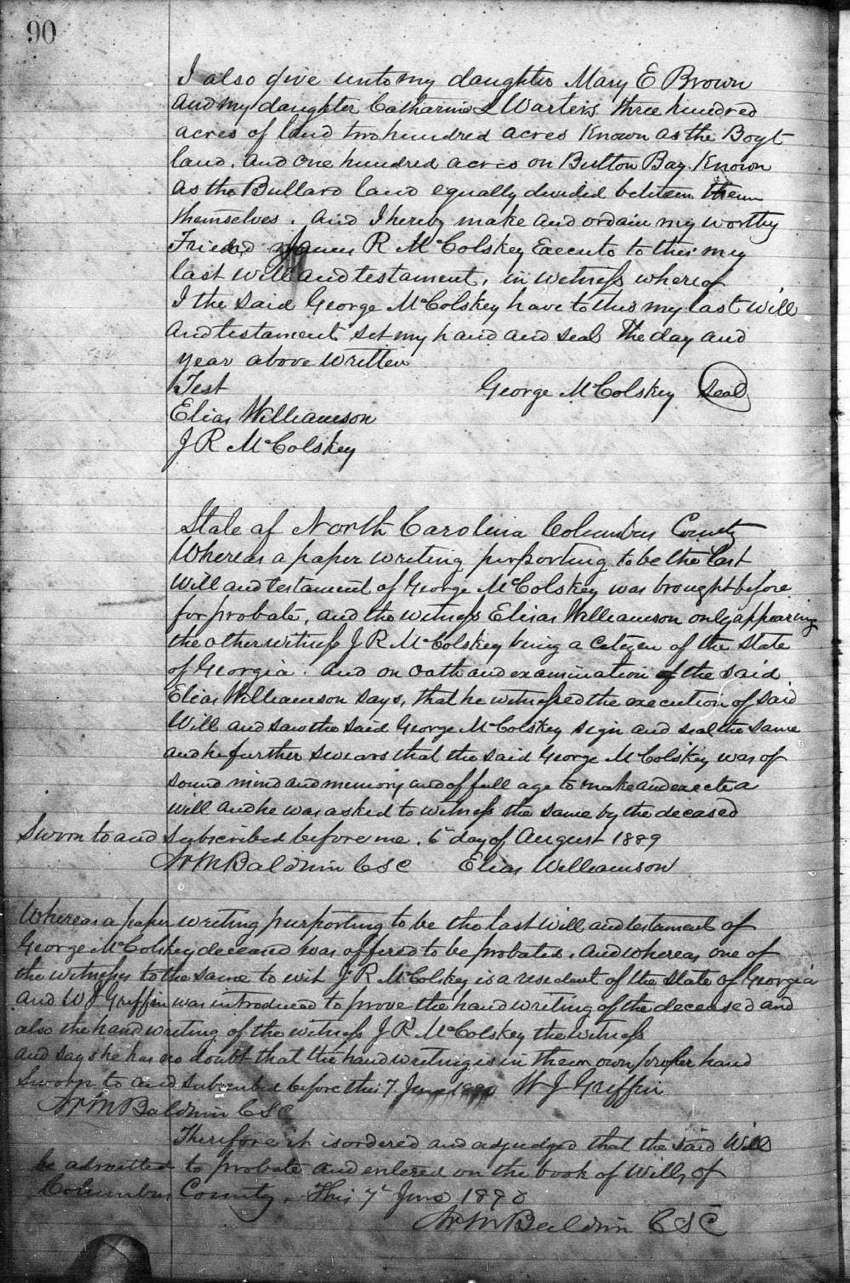 90
I also give unto my daughter Mary E Brown
and my daughter Catharine L Warters three hundred
acres of land two hundred acres Known as the Boyt
land. and one hundred acres on Button Bay Known
as the Bullard land equally divided between them
themselves. And I hereby make and ordain my worthy
Friend James R McColskey Execute to this my
last will and testament, in witness whereof
I the said George McColskey have to this my last will
and testament set my hand and seal the day and
year above written
Test George McColskey Seal
Elias Williamson
J R McColskey
State of North Carolina Columbus County
Whereas a paper writing purporting to be the last
will and testament of George McColskey was brought before
for probate, and the witness Elias Williamson only appearing
the other witness J R McColskey being a Citizen of the State
of Georgia. And on oath and examination of the said
Elias Williamson says, that he witnessed the execution of said
Will and saw the said George McColskey sign and seal the same
and he further swears that the said George McColskey was of
sound mind and memory and of full age to make and execute a
will and he was asked to witness the same by the deceased
Sworn to and subscribed before me. 6th day of August 1889
Baldwin CSC Elias Williamson
Whereas a paper writing purporting to be the last will and testament of
George McColskey deceased was offered to be probated. and whereas one of
the witnesses to the same to wit J R McColskey is a resident of the State of Georgia
and W J Griffin was introduced to prove the hand writing of the deceased and
also the hand writing of the witness J R McColskey the witness
and says he has no doubt that the handwriting is in them own proper hand
Sworn to and subscribed before this 7 June 1890 W J Griffin
Baldwin CSC
Therefore it is ordered and adjudged that the said Will
be admitted to probate and entered on the book of Wills of
Columbus County. This 7th June 1890
Baldwin CSC